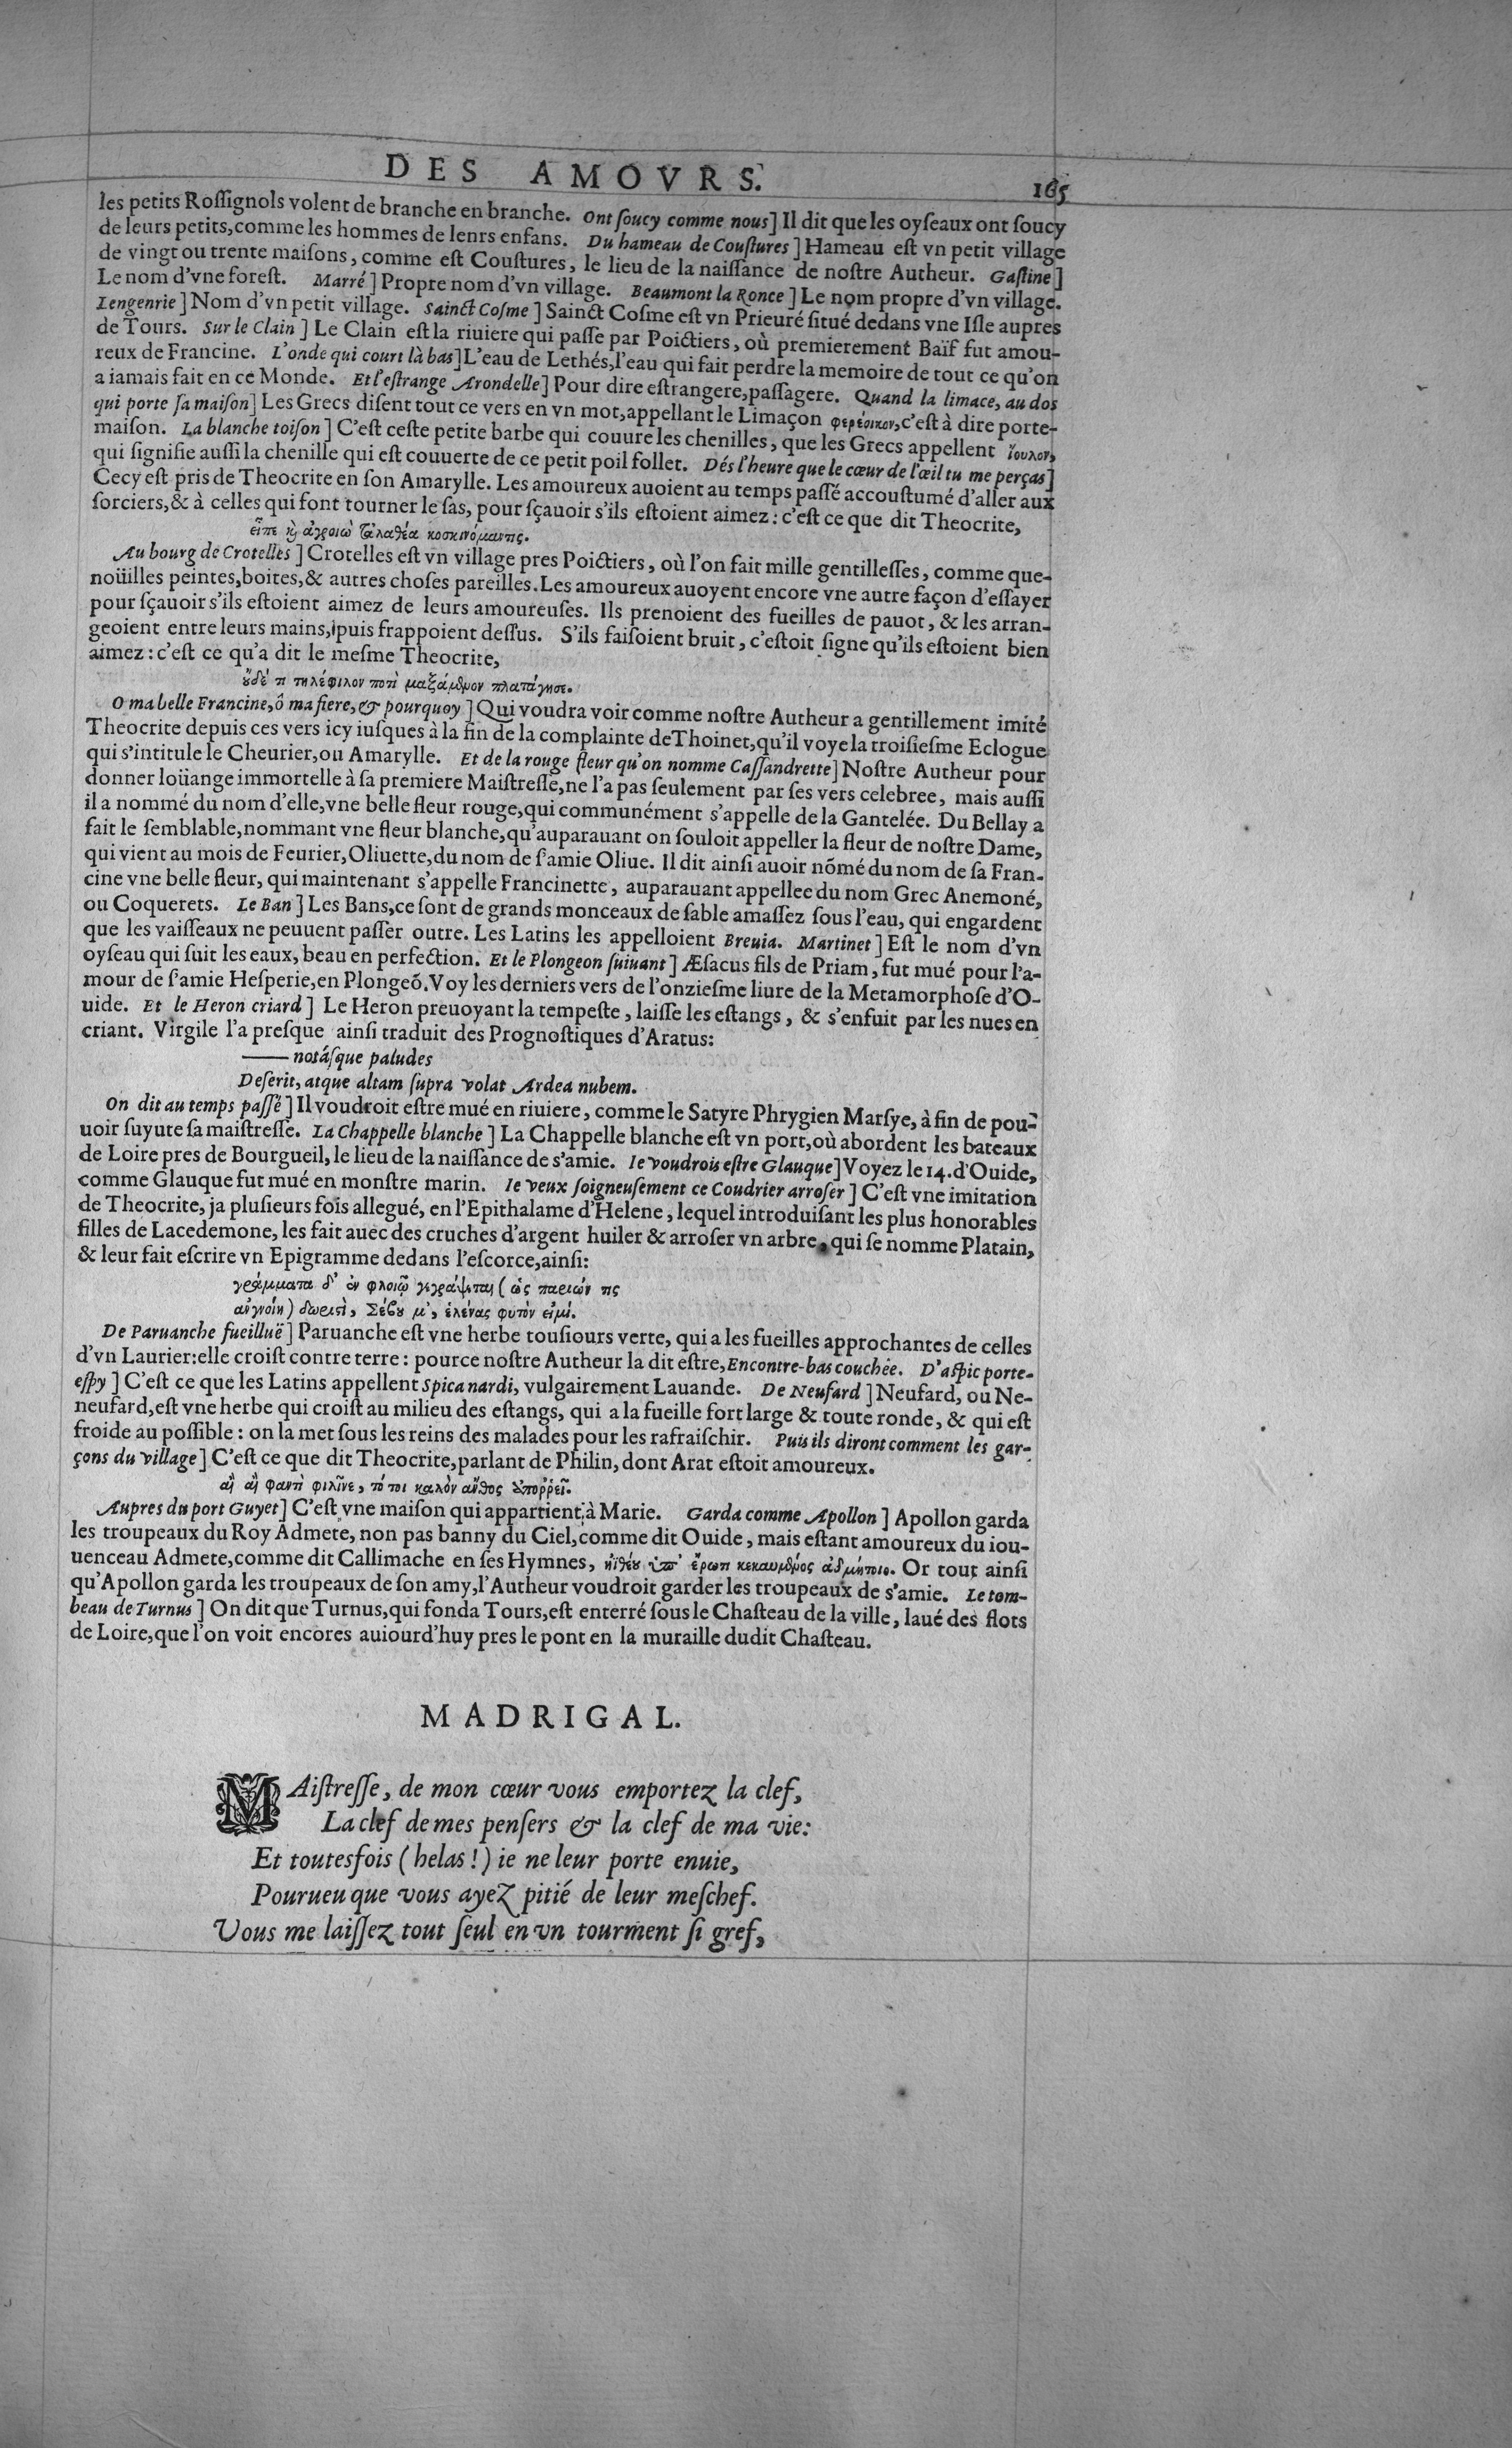 DES AMOVRS.
165
les petits Roſſignols volent de branche en branche. Ont ſoucy comme nous] Il dit que les oyſeaux ont ſoucy
de leurs petits, comme les hommes de lenrs enfans. Du hameau de Couſtures] Hameau eſt vn petit village
de vingt ou trente maiſons, comme eſt Couſtures, le lieu de la naiſſance de noſtre Autheur. Gaſtine]
Le nom d'vne foreſt. Marré] Propre nom d'vn village. Beaumont la Ronce] Le nom propre d'vn village.
Lengenrie] Nom d'vn petit village. Sainct Coſme] Sainct Coſme eſt vn Prieuré ſitué dedans vne Iſle aupres
de Tours. Sur le Clain] Le Clain eſt la riuiere qui paſſe par Poictiers, où premierement Baïf fut amou-
reux de Francine. L'onde qui court là bas] L'eau de Lethés, l'eau qui fait perdre la memoire de tout ce qu'on
a iamais fait en ce Monde. Et l'eſtrange Arondelle] Pour dire eſtrangere, paſſagere. Quand la limace, au dos
qui porte ſa maiſon] Les Grecs diſent tout ce vers en vn mot, appellant le Limaçon φερέοικον, c'eſt à dire porte-
maiſon. La blanche toiſon] C'eſt ceſte petite barbe qui couure les chenilles, que les Grecs appellent ἴουλον,
qui ſignifie auſſi la chenille qui eſt couuerte de ce petit poil follet. Dés l'heure que le cœur de l'œil tu me perças]
Cecy eſt pris de Theocrite en ſon Amarylle. Les amoureux auoient au temps paſſé accouſtumé d'aller aux
ſorciers, & à celles qui font tourner le ſas, pour ſçauoir s'ils eſtoient aimez: c'eſt ce que dit Theocrite,
εἶπε καὶ ἀγροιὼ ταλαθέα κοσκινόμαντις.
Au bourg de Crotelles] Crotelles eſt vn village pres Poictiers, où l'on fait mille gentilleſſes, comme que-
noüilles peintes, boites, & autres choſes pareilles. Les amoureux auoyent encore vne autre façon d'eſſayer
pour ſçauoir s'ils eſtoient aimez de leurs amoureuſes. Ils prenoient des fueilles de pauot, & les arran-
geoient entre leurs mains, puis frappoient deſſus. S'ils faiſoient bruit, c'eſtoit ſigne qu'ils eſtoient bien
aimez: c'eſt ce qu'a dit le meſme Theocrite,
οὐδέ τι τηλέφιλον ποτὶ μαξάμενον πλατάγησε.
O ma belle Francine, ô ma fiere, & pourquoy] Qui voudra voir comme noſtre Autheur a gentillement imité
Theocrite depuis ces vers icy iuſques à la fin de la complainte de Thoinet, qu'il voye la troiſieſme Eclogue
qui s'intitule le Cheurier, ou Amarylle. Et de la rouge fleur qu'on nomme Caſſandrette] Noſtre Autheur pour
donner loüange immortelle à ſa premiere Maiſtreſſe, ne l'a pas ſeulement par ſes vers celebree, mais auſſi
il a nommé du nom d'elle, vne belle fleur rouge, qui communément s'appelle de la Gantelée. Du Bellay a
fait le ſemblable, nommant vne fleur blanche, qu'auparauant on ſouloit appeller la fleur de noſtre Dame,
qui vient au mois de Feurier, Oliuette, du nom de ſ'amie Oliue. Il dit ainſi auoir nõmé du nom de ſa Fran-
cine vne belle fleur, qui maintenant s'appelle Francinette, auparauant appellee du nom Grec Anemoné,
ou Coquerets. Le Ban] Les Bans, ce ſont de grands monceaux de ſable amaſſez ſous l'eau, qui engardent
que les vaiſſeaux ne peuuent paſſer outre. Les Latins les appelloient Breuia. Martinet] Eſt le nom d'vn
oyſeau qui ſuit les eaux, beau en perfection. Et le Plongeon ſuiuant] Æſacus fils de Priam, fut mué pour l'a-
mour de ſ'amie Heſperie, en Plongeõ. Voy les derniers vers de l'onzieſme liure de la Metamorphoſe d'O-
uide. Et le Heron criard] Le Heron preuoyant la tempeſte, laiſſe les eſtangs, & s'enfuit par les nues en
criant. Virgile l'a preſque ainſi traduit des Prognoſtiques d'Aratus:
—— notáſque paludes
Deſerit, atque altam ſupra volat Ardea nubem.
On dit au temps paſſé] Il voudroit eſtre mué en riuiere, comme le Satyre Phrygien Marſye, à fin de pou-
uoir ſuyure ſa maiſtreſſe. La Chappelle blanche] La Chappelle blanche eſt vn port, où abordent les bateaux
de Loire pres de Bourgueil, le lieu de la naiſſance de s'amie. Ie voudrois eſtre Glauque] Voyez le 14. d'Ouide,
comme Glauque fut mué en monſtre marin. Ie veux ſoigneuſement ce Coudrier arroſer] C'eſt vne imitation
de Theocrite, ja pluſieurs fois allegué, en l'Epithalame d'Helene, lequel introduiſant les plus honorables
filles de Lacedemone, les fait auec des cruches d'argent huiler & arroſer vn arbre, qui ſe nomme Platain,
& leur fait eſcrire vn Epigramme dedans l'eſcorce, ainſi:
γράμματα δ' ἐν φλοιῷ γεγράψεται (ὡς παριών τις
ἀνγνοίη) δωριστὶ, Σέβου μ', ἑλένας φυτὸν εἰμί.
De Paruanche fueilluë] Paruanche eſt vne herbe touſiours verte, qui a les fueilles approchantes de celles
d'vn Laurier: elle croiſt contre terre: pource noſtre Autheur la dit eſtre, Encontre-bas couchée. D'aſpic porte-
eſpy] C'eſt ce que les Latins appellent Spica nardi, vulgairement Lauande. De Neufard] Neufard, ou Ne-
neufard, eſt vne herbe qui croiſt au milieu des eſtangs, qui a la fueille fort large & toute ronde, & qui eſt
froide au poſſible: on la met ſous les reins des malades pour les rafraiſchir. Puis ils diront comment les gar-
çons du village] C'eſt ce que dit Theocrite, parlant de Philin, dont Arat eſtoit amoureux.
αἲ αἲ φαντὶ φιλῖνε, τό τοι καλὸν ἄνθος ἀπορρεῖ.
Aupres du port Guyet] C'eſt vne maiſon qui appartient à Marie. Garda comme Apollon] Apollon garda
les troupeaux du Roy Admete, non pas banny du Ciel, comme dit Ouide, mais eſtant amoureux du iou-
uenceau Admete, comme dit Callimache en ſes Hymnes, ἠϊθέου ὑπ' ἔρωτι κεκαυμένος ἀδμήτοιο. Or tout ainſi
qu'Apollon garda les troupeaux de ſon amy, l'Autheur voudroit garder les troupeaux de s'amie. Le tom-
beau de Turnus] On dit que Turnus, qui fonda Tours, eſt enterré ſous le Chaſteau de la ville, laué des flots
de Loire, que l'on voit encores auiourd'huy pres le pont en la muraille dudit Chaſteau.
MADRIGAL.
MAiſtreſſe, de mon cœur vous emportez la clef,
La clef de mes penſers & la clef de ma vie:
Et toutesfois (helas!) ie ne leur porte enuie,
Pourueu que vous ayez pitié de leur meſchef.
Vous me laiſſez tout ſeul en vn tourment ſi gref,